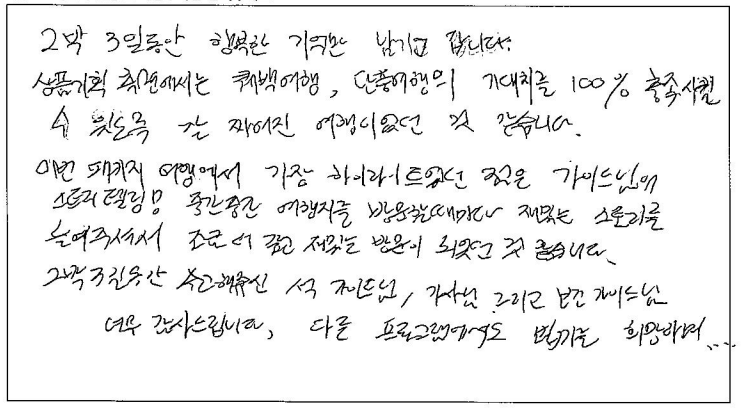 2박 3일동안 행복한 기억만 남기고 갑니다.
상품기획 측면에서는 퀘백여행, 단풍여행의 기대치를 100% 충족시킬
수 있도록 잘 짜여진 여행이었던 것 같습니다.
이번 패키지 여행에서 가장 하이라이트였던 점은 가이드님의
스토리텔링! 중간중간 여행지를 방문할때마다 재밌는 스토리를
늘여주셔서 조금 더 깊고 재밌는 방문이 되었던 것 같습니다.
2박 3일동안 수고해주신 석 가이드님, 기사님 그리고 보조 가이드님
너무 감사드립니다, 다른 프로그램에서도 뵙기를 희망하며...